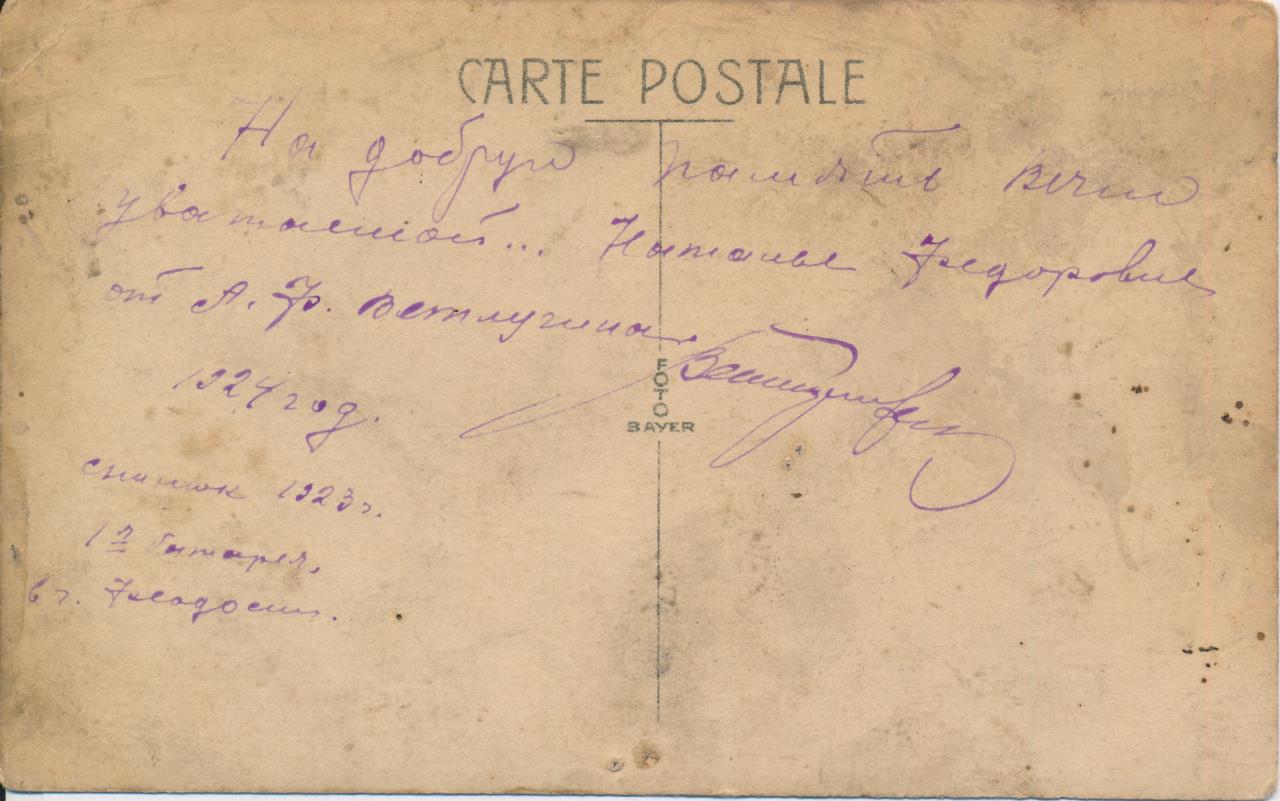 CARTE POSTALE
На добрую память вечно
уважаемой... Наталье Федоровне
от А. Ф. Ветлугина.
1924 год.
FOTO
BAYER
снимок 1923 г.
1я батарея,
в г. Феодосии.